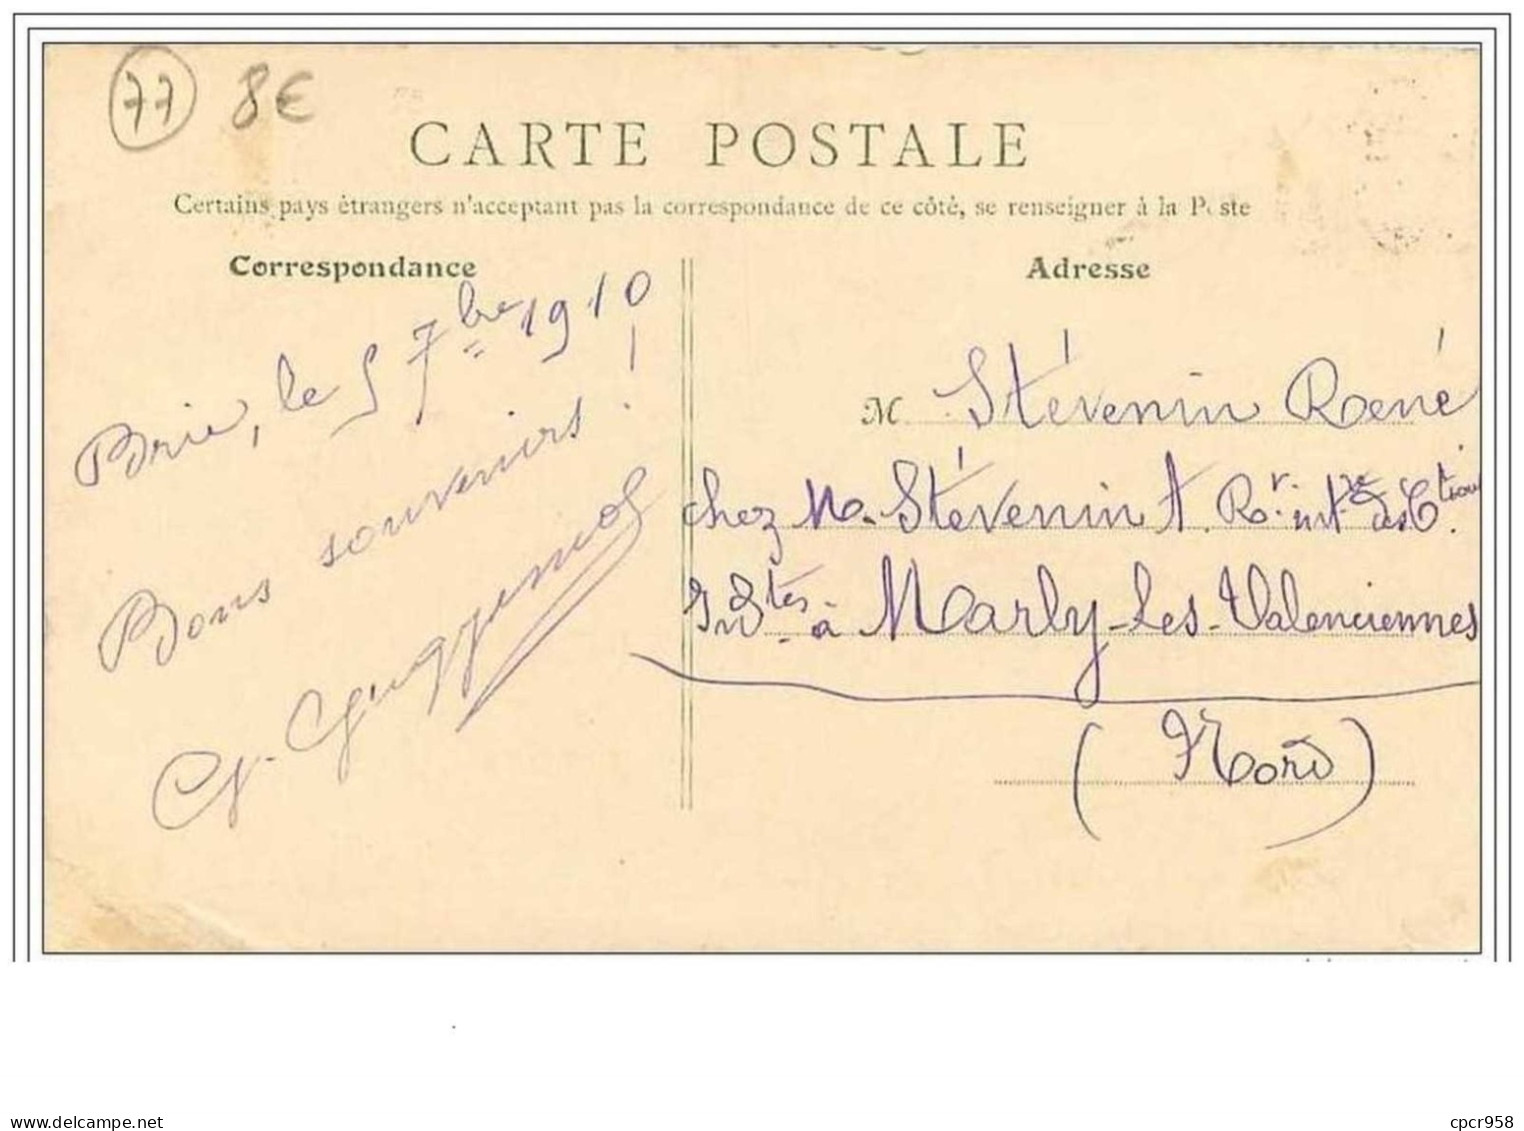 77 8€
CARTE POSTALE
Certains pays étrangers n'acceptant pas la correspondance de ce côté, se renseigner à la Poste
Correspondance
Adresse
Brie, le 5 7bre 1910
Bons souvenirs !
M. Stévenin René
chez M. Stévenin A. Rr. int. des Ctions
Indtes à Marly-les-Valenciennes
(Nord)
cpcr958